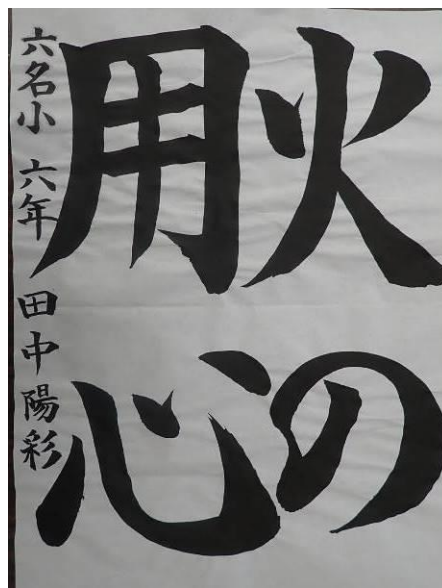 火の
用心
六名小 六年 田中陽彩